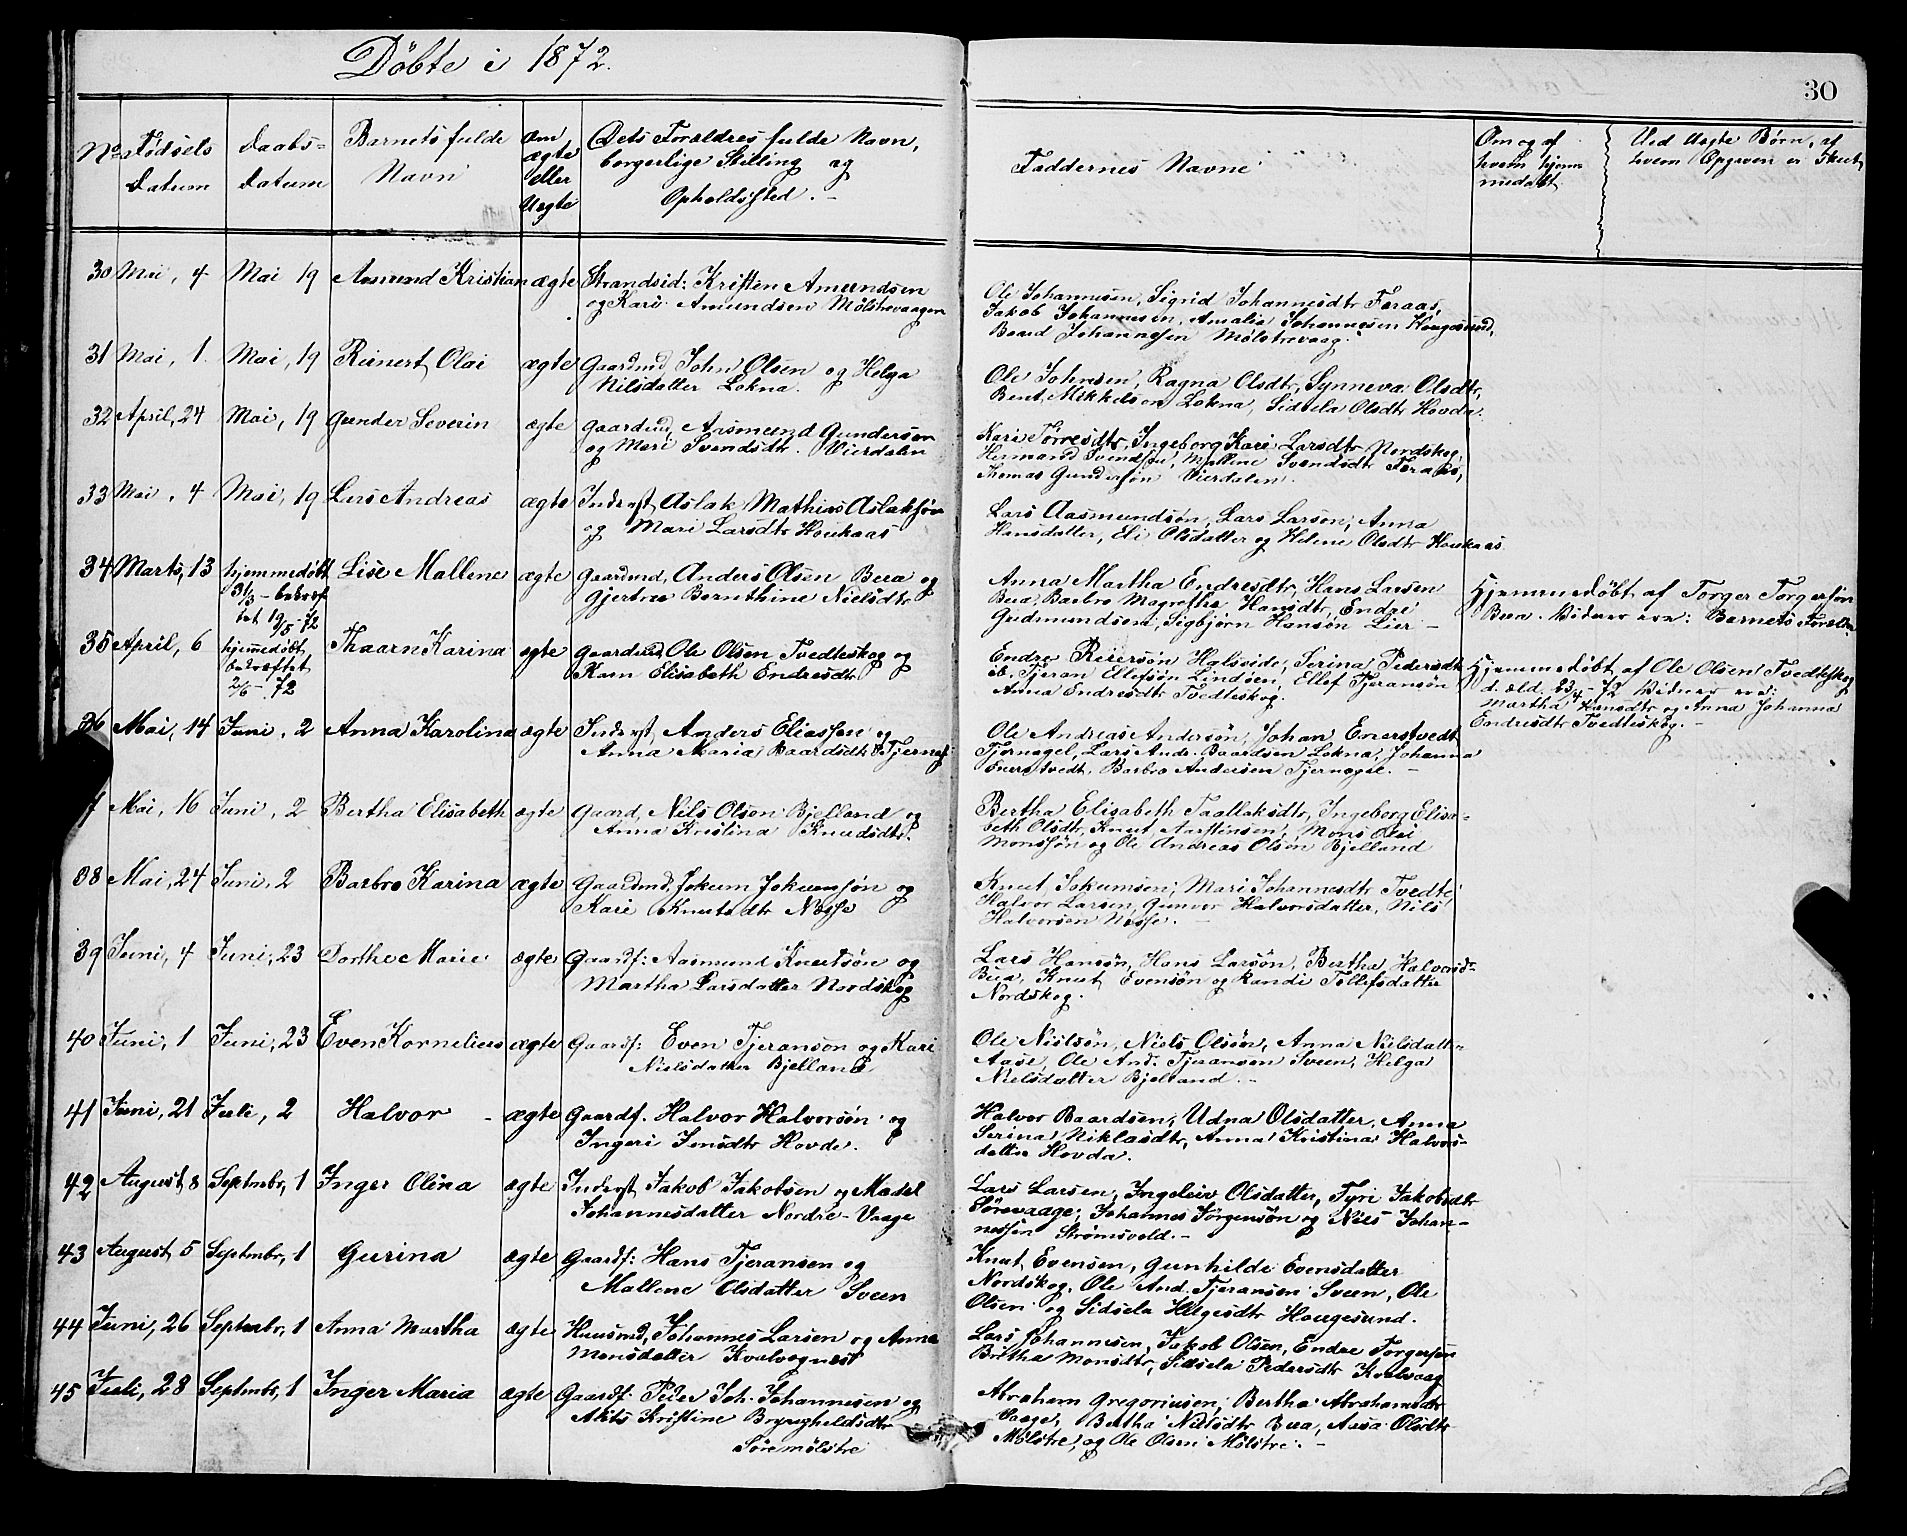 Döbte i 1872.
30
No Fødsels Datum
Daabs- datum
Barnets fulde Navn
Om ægte eller Uægte
Dets Forældres fulde Navn, borgerlige Stilling og Opholdssted. -
Faddernes Navne
Om og af hvem hjemmedøbt.
Ved Uægte Børn, af hvem Opgaven er Skeet
30 Mai, 4 Mai 19 Asmund Kristian ægte Strandsid: Kristen Amundsen
og Kari Amundsen Mölstrevaagen
Ole Johannesen, Sigrid Johannesdtr Foraas,
Jakob Johannesen, Amalia Johannesen Haugesund,
Baard Johannesen Mölstrevaag.
31 Mai, 1. Mai, 19 Reinert Olai ægte Gaardmd, John Olsen og Helga
Nilsdatter Lokna.
Ole Johnsen, Ragna Olsdtr, Synneva Olsdtr,
Bent Mikkelsen Lokna, Sidsela Olsdtr Hovda.
32 April, 24 Mai, 19 Gunder Severin ægte Gaardmd, Aasmund Gundersen
og Mari Svendsdtr. Vierdalen
Kari Torresdtr, Ingeborg Kari Larsdtr Nordskog,
Hermand Svendsen, Mallene Svendsdtr Foraas,
Thomas Gundersön Vierdalen.
33 Mai, 4 Mai, 19 Lars Andreas ægte Inderst Aslak Mathias Aslaksön
og Mari Larsdtr Houkaas
Lars Aasmundsön, Lars Larsen, Anna
Hansdatter, Eli Olsdatter og Helene Olsdtr Houkaas
34 Marts, 13 hjemmedöbt 31/3 - bekræftet 19/5-72 Lise Mallene ægte Gaardmd, Anders Olsen Bua og
Gjertru Bernthine Nielsdtr
Anna Martha Endresdtr, Hans Larsen
Bua, Barbro Magrethe Hansdtr, Endre
Gudmundsen, Sigbjørn Hansön Lier -
Hjemmedöbt af Torger Torgersön
Bua. Vidner ere: Barnets Forældre
35 April, 6 hjemmedöbt, bekræftet 2/6-72 Thaarn Karina ægte Gaardmd, Ole Olsen Tvedteskog og
Karn Elisabeth Endresdtr
Endre Reiersön Halseide, Serina Pedersdtr
ib. Tjeran Ellefsön Lindöen, Ellef Tjeransön
Anna Endresdtr Tvedteskog.
Hjemmedöbt af Ole Olsen Tvedteskog
d. æld. 23/4-72 Vidner ere:
Martha Hansdtr og Anna Johanna
Endresdtr Tvedteskog. -
36 Mai, 14 Juni, 2 Anna Karolina ægte Inderst, Anders Eliassen og
Anna Maria Baardsdtr Tjernag
Ole Andreas Andersön, Johan Enerstvedt
Tjernagel, Lars Andr. Baardsen Lokna, Johanna
Enerstvedt, Barbro Andersen Tjernagel. -
7 Mai, 16 Juni, 2 Bertha Elisabeth ægte Gaard, Nils Olsen Bjelland og
Anna Kristina Knudsdtr.
Bertha Elisabeth Taallaksdtr, Ingeborg Elisa-
beth Olsdtr, Knut Aarstinsen, Mons Olai
Monssön og Ole Andreas Olsen Bjelland
38 Mai, 24 Juni, 2 Barbro Karina ægte Gaardmd, Jokum Jokumsön og
Kari Knutsdtr Næsse
Knut Jokumsen, Mari Johannesdtr Tvedte
Halvor Larsen, Gunvor Halvorsdatter, Nils
Halvorsen Næsse.
39 Juni, 4 Juni, 23 Dorthe Marie ægte Gaardf: Aasmund Knutsön og
Martha Larsdatter Nordskog
Lars Hansön, Hans Larsön, Bertha Halvorsd-
Bua, Knut Evensön og Randi Tollefsdatter
Nordskog.
40 Juni, 1 Juni, 23 Even Kornelius ægte Gaardf: Even Tjeranson og Kari
Nielsdatter Bjelland
Ole Nielsön, Niels Olsön, Anna Nielsdatter
Aase, Ole And. Tjeransen Sveen, Helga
Nielsdatter Bjelland. -
41 Juni, 21 Juli, 2 Halvor - ægte Gaardf. Halvor Halvorsön og
Ingeri Jensdtr Hovde.
Halvor Baardsen, Udna Olsdatter, Anna
Serina Niklasdtr, Anna Kristina Halvors-
datter Hovda.
42 August, 8 Septmbr, 1 Inger Olina ægte Inderst Jakob Jakobsen og Madel
Johannesdatter Nordre-Vaage
Lars Larsen, Ingeleiv Olsdatter, Tyri Jakobsdtr
Sörevaage, Johannes Jörgensön og Nils Johan-
nessen Strømsvold. -
43 August 5 Septmbr, 1 Gurina ægte Gaardf: Hans Tjeransen og
Mallene Olsdatter Sveen
Knut Evensen, Gunhilde Evensdatter
Nordskog, Ole And. Tjeransen Sveen, Ole
Olsen og Sidsela Helgesdtr Hougesund.
44 Juni, 26 Septmbr, 1 Anna Martha ægte Huusmd, Johannes Larsen og Anna
Monsdatter Kvalvognest
Lars Johannesen, Jakob Olsen, Endre Torgersen
Britha Monsdtr, Sidsela Pedersdtr Kvalvaag
45 Juli, 28 Septmbr, 1 Inger Maria ægte Gaardf. Peder Joh. Johannesen og
Akits Kristine Brynghildsdtr
Söremölstre
Abraham Gregoriusen, Bertha Abrahamsdtr
Vaage, Bertha Nielsdtr Bua, Aasa Olsdtr
Mölstre, og Ole Olsen Mölstre. -